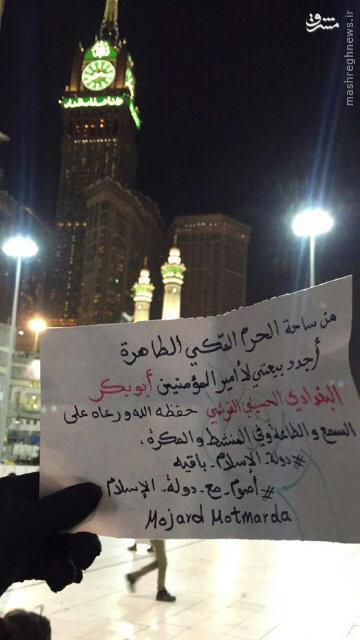 مشرق
mashreghnews.ir
من ساحة الحرم المكي الطاهرة
أجدد بيعتي لأمير المؤمنين أبو بكر
البغدادي الحسيني القرشي حفظه الله ورعاه على
السمع والطاعة وفي المنشط والمكره،
#دولة_الإسلام_باقيه
#أصوم_مع_دولة_الإسلام
Mojard Motmarda